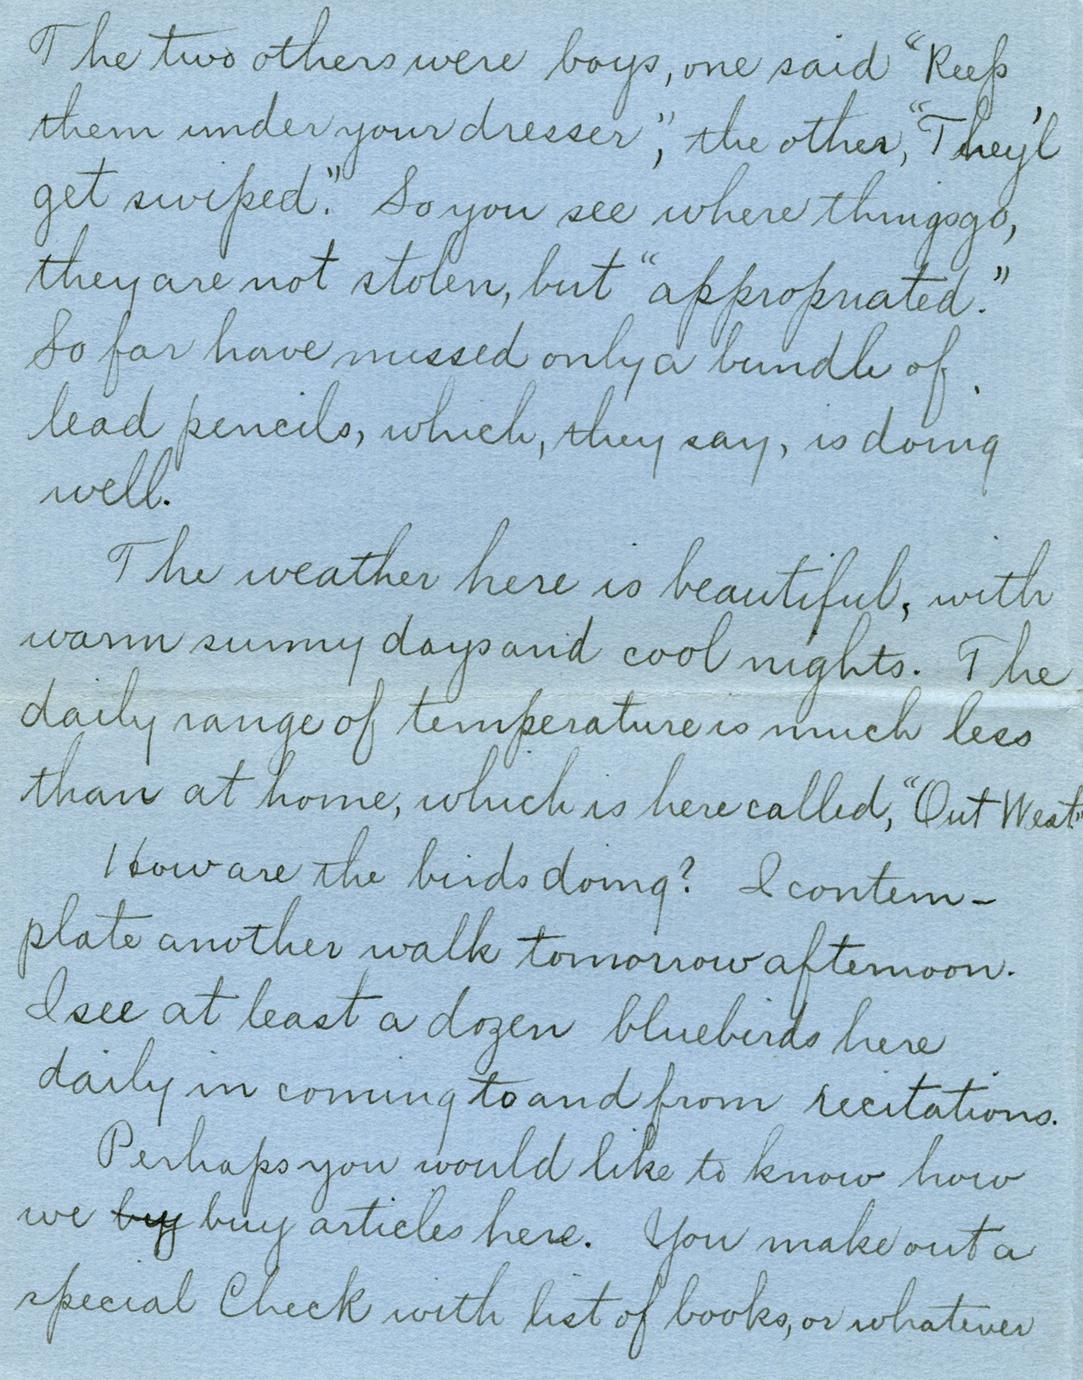 The two others were boys, one said "Keep
them under your dresser", the other, "They'l
get swiped." So you see where things go,
they are not stolen, but "appropriated."
So far have missed only a bundle of
lead pencils, which, they say, is doing
well.
The weather here is beautiful, with
warm sunny days and cool nights. The
daily range of temperature is much less
than at home, which is here called, "Out West"
How are the birds doing? I contem-
plate another walk tomorrow afternoon.
I see at least a dozen bluebirds here
daily in coming to and from recitations.
Perhaps you would like to know how
we by buy articles here. You make out a
special Check with list of books, or whatever